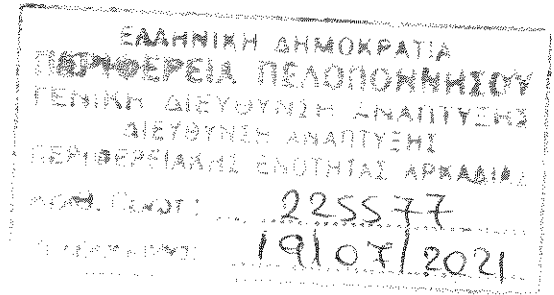 ΕΛΛΗΝΙΚΗ ΔΗΜΟΚΡΑΤΙΑ
ΠΕΡΙΦΕΡΕΙΑ ΠΕΛΟΠΟΝΝΗΣΟΥ
ΓΕΝΙΚΗ ΔΙΕΥΘΥΝΣΗ ΑΝΑΠΤΥΞΗΣ
ΔΙΕΥΘΥΝΣΗ ΑΝΑΠΤΥΞΗΣ
ΠΕΡΙΦΕΡΕΙΑΚΗΣ ΕΝΟΤΗΤΑΣ ΑΡΚΑΔΙΑΣ
225577
19/07/2021